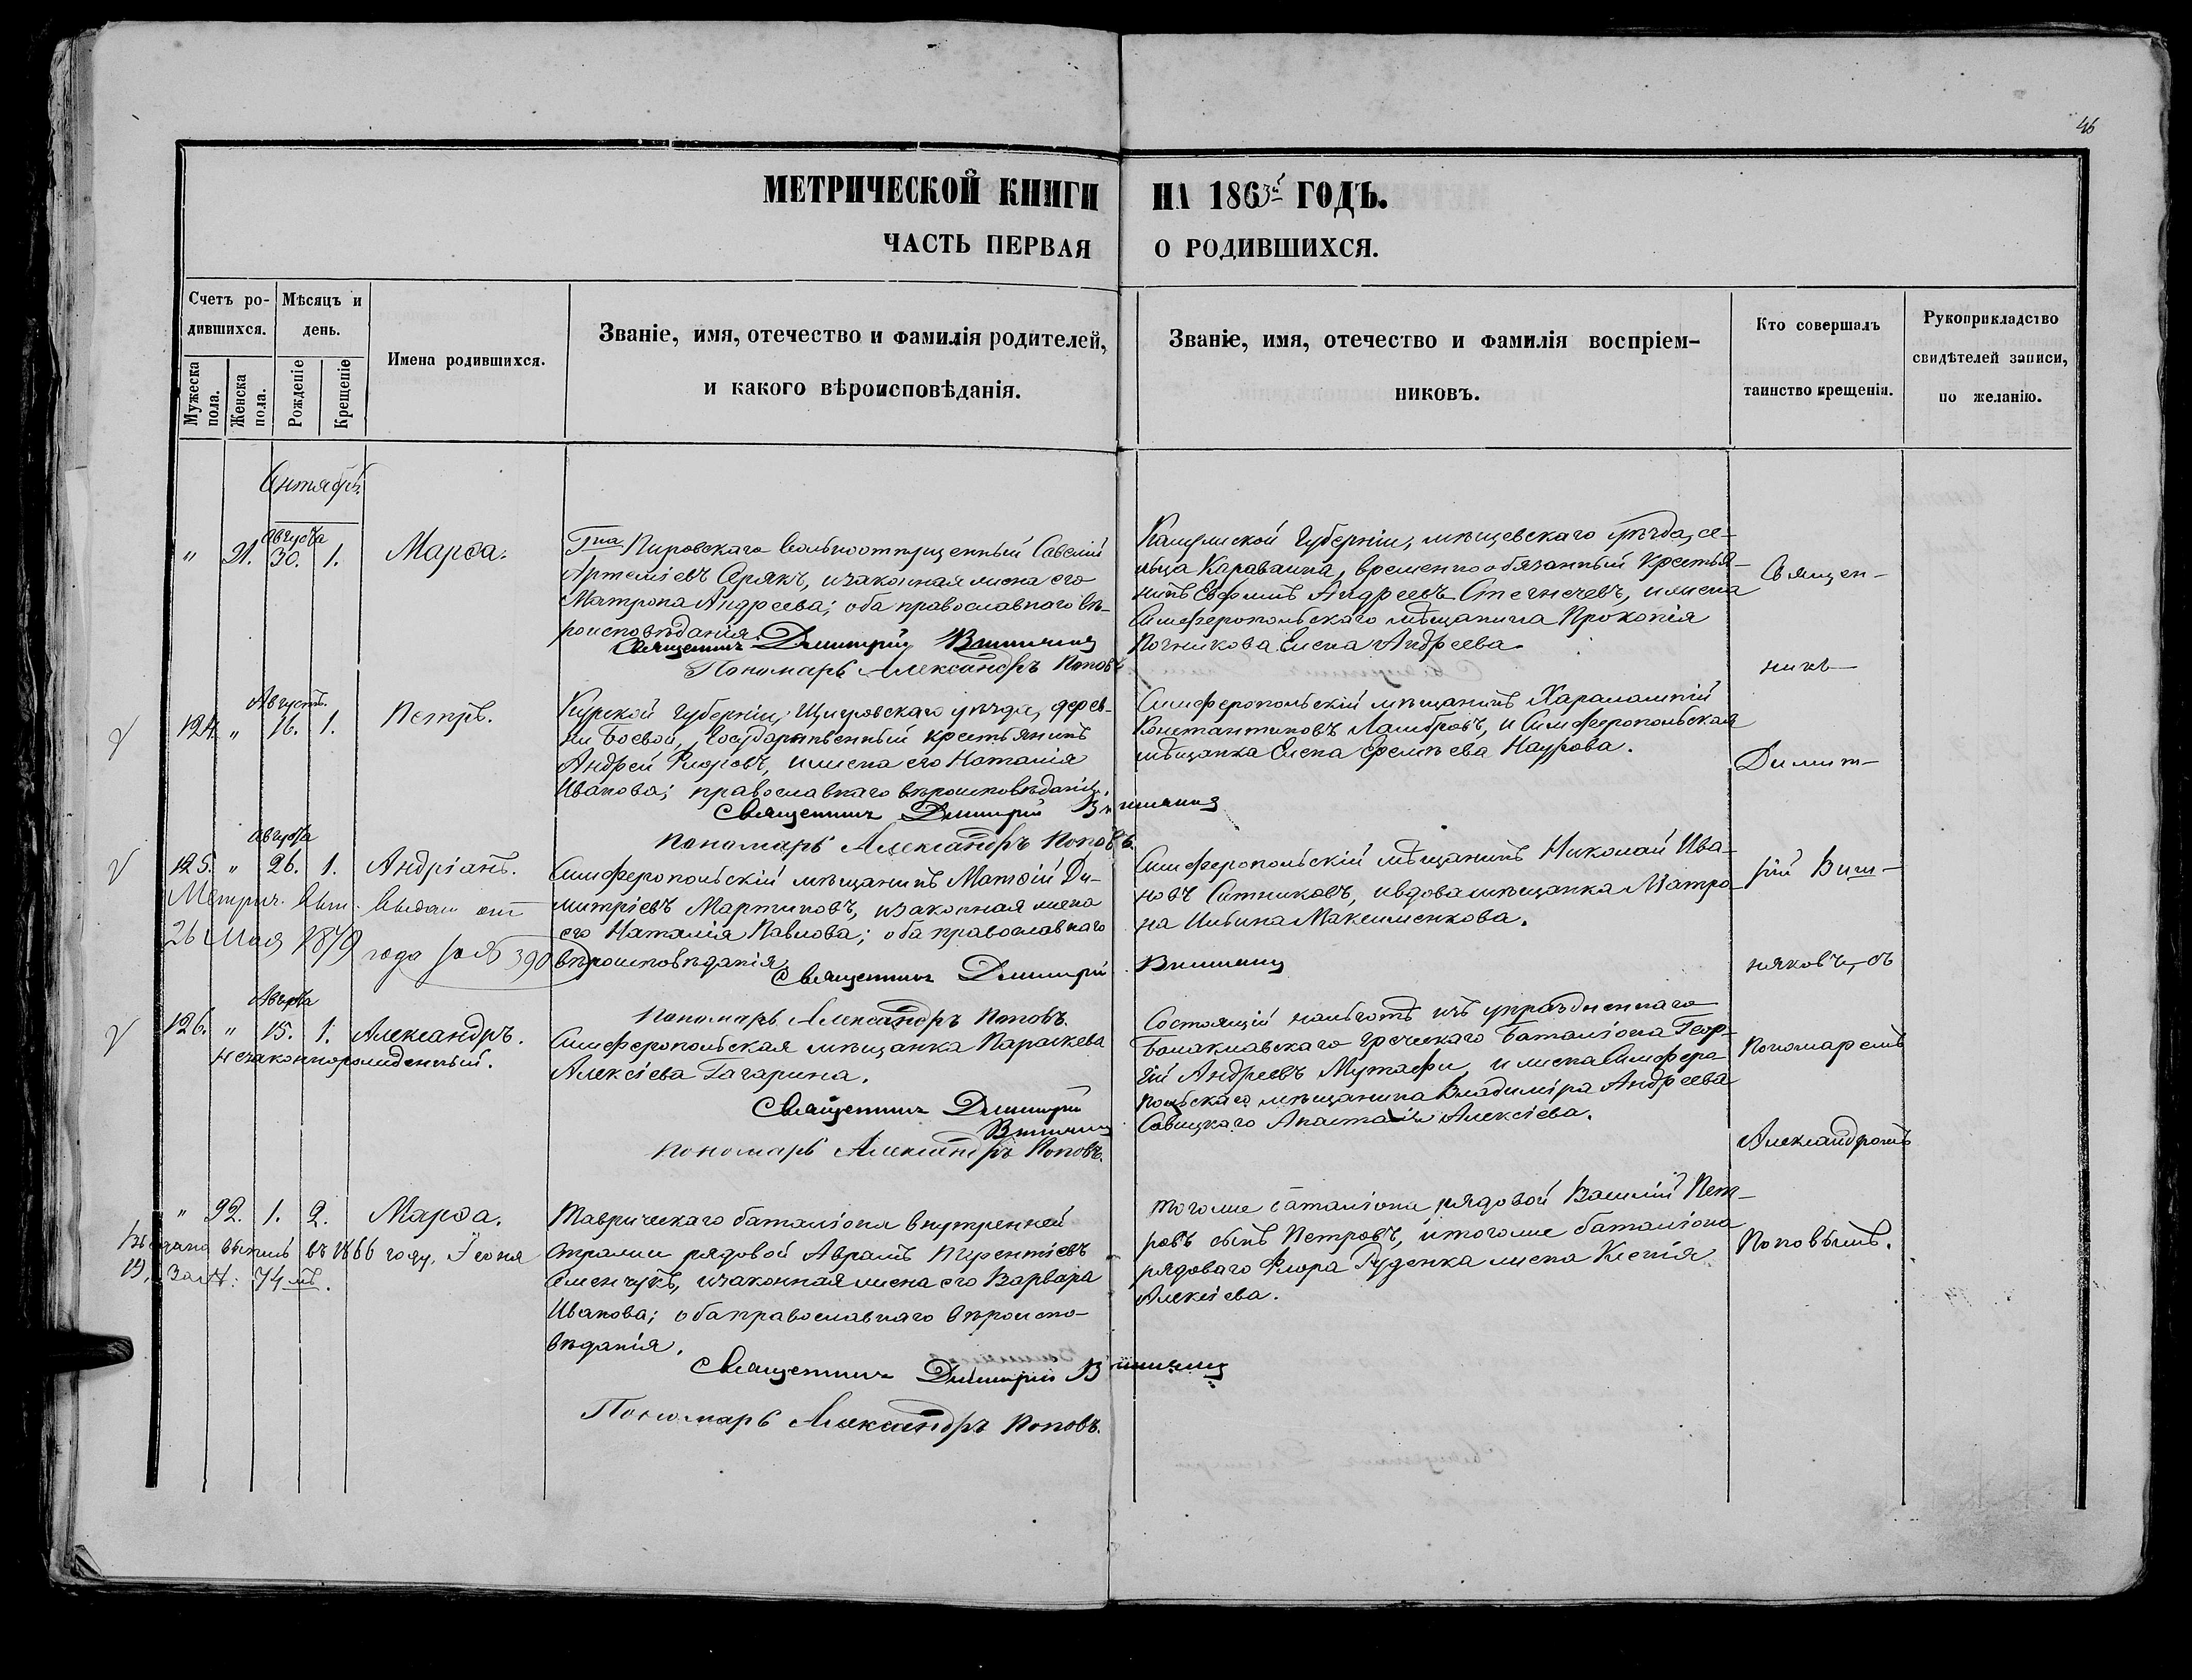 46
МЕТРИЧЕСКОЙ КНИГИ НА 1863й ГОДЪ.
ЧАСТЬ ПЕРВАЯ О РОДИВШИХСЯ.
Счетъ ро-
дившихся.
Мужеска пола.
Женска пола.
Мѣсяцъ и
день.
Рожденіе
Крещеніе
Имена родившихся.
Званіе, имя, отечество и фамилія родителей,
и какого вѣроисповѣданія.
Званіе, имя, отечество и фамилія воспріем-
никовъ.
Кто совершалъ
таинство крещенія.
Рукоприкладство
свидѣтелей записи,
по желанію.
Августа
" 91. 30. 1. Марѳа.
Гна Пировскаго вольноотпущенный Савелій
Артеміевъ Серякъ, и законная жена его
Матрона Андреева; оба православнаго вѣ-
роисповѣданія.
Священникъ Димитрій
Пономарь Александръ Поповъ
Калужской Губерніи, мѣщевскаго уѣзда, се-
льца Караваина, временно обязанный крестья-
нинъ Евфимъ Андреевъ, и жена
Симферопольскаго мѣщанина Прокопія
Елена Андреева.
Августъ.
124. " 16. 1. Петръ.
Курской Губерніи, Щигровскаго уѣзда, дерев-
ни Боевой, Государственный крестьянинъ
Андрей Флоровъ, и жена его Наталія
Иванова; православнаго вѣроисповѣданія.
Священникъ Димитрій
Пономарь Александръ Поповъ.
Симферопольскій мѣщанинъ Харалампій
Константиновъ Ламбровъ, и Симферопольская
мѣщанка Елена Наурова.
Августа
125. " 26. 1. Андріанъ.
Метрич. выданъ отъ
26 Мая 1879 года за № 390
Симферопольскій мѣщанинъ Матѳій Ди-
митріевъ Мартиновъ, и законная жена
его Наталія Павлова; оба православнаго
вѣроисповѣданія
Священникъ Димитрій
Пономарь Александръ Поповъ.
Симферопольскій мѣщанинъ Николай Ива-
новъ Ситниковъ, и вдова мѣщанка Матро-
на Ильина Максименкова.
Августа
126. " 15. 1. Александръ.
Незаконнорожденный.
Симферопольская мѣщанка Параскева
Алексіева Гагарина.
Священникъ Димитрій
Пономарь Александръ Поповъ.
Состоящій изъ упраздненнаго
Балаклавскаго греческаго Баталіона Геор-
гій Андреевъ Мутафи, и жена Симферо-
польскаго мѣщанина Владиміра Андреева
Савицкаго Анастасія Алексіева.
" 92. 1. 2. Марѳа.
въ 1866 году, Іюня
19, За №: 74мъ.
Таврическаго баталіона внутренней
стражи рядовой Аврамъ
Семенчукъ, и законная жена его Варвара
Иванова; оба православнаго вѣроиспо-
вѣданія.
Священникъ Димитрій
Пономарь Александръ Поповъ.
Тогоже баталіона рядовой Василій Пет-
ровъ сынъ Петровъ, и тогоже баталіона
рядоваго Флора Руденка жена Ксенія
Алексіева.
Священ-
никъ
Димит-
рій Виш-
няковъ, съ
Пономаремъ
Александромъ
Поповымъ.